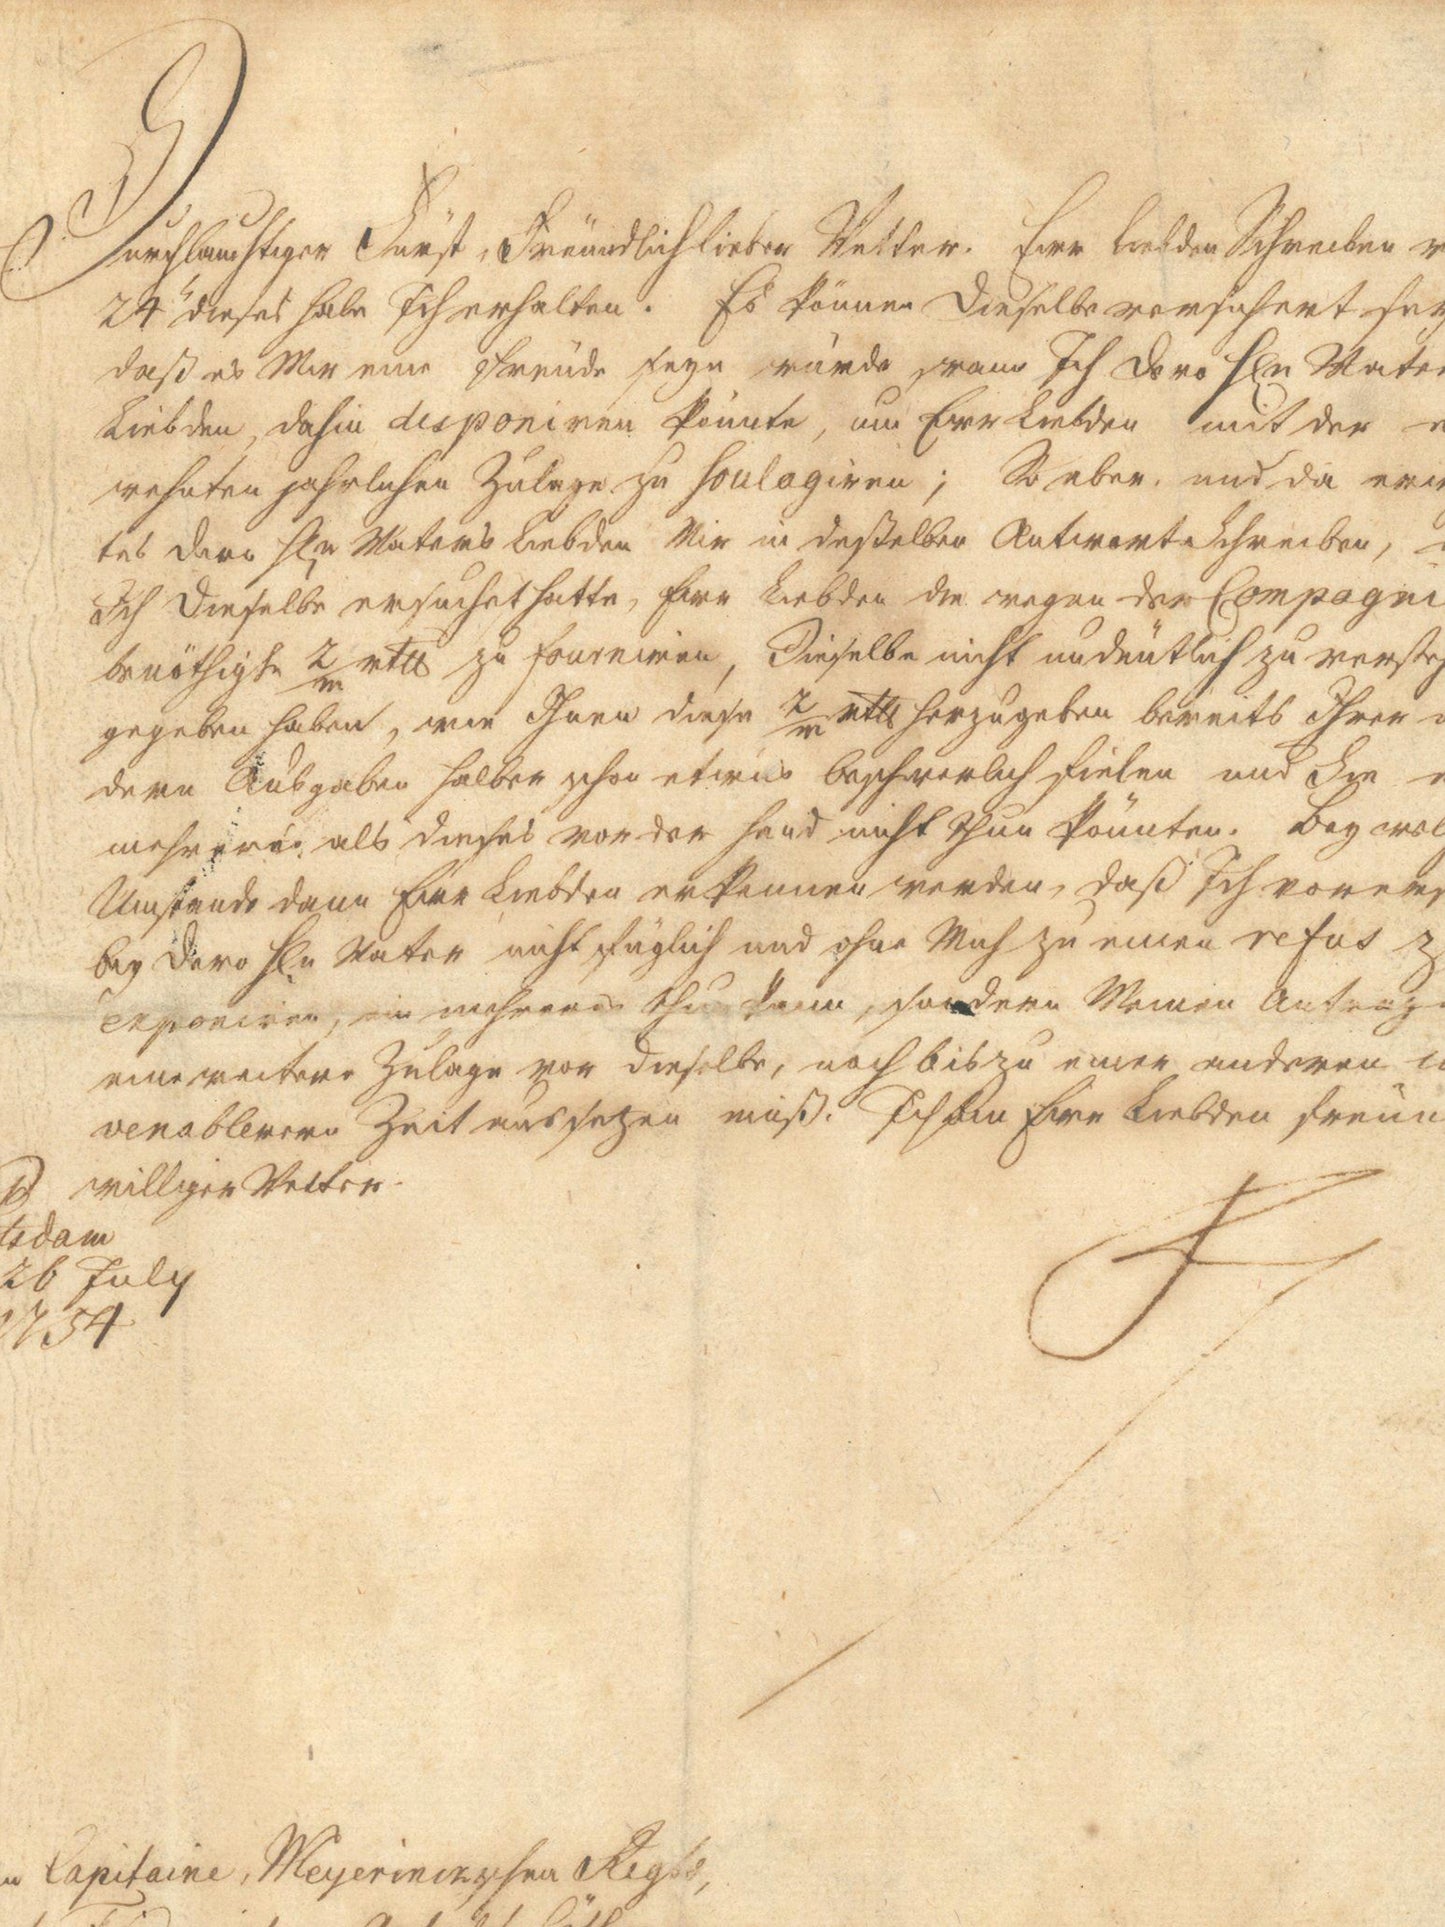 Durchlauchtiger Fürst, Freündlich lieber Vetter. Ewr Liebden Schreiben v
24ten dieses habe Ich erhalten. Es können Dieselbe versichert sey
daß es Mir eine Freüde seyn würde wann Ich Dero Hln Vater
Liebden, dahin disponiren könnte, um Ewr Liebden mit der e
wehnten jahrlichen Zulage zu soulagiren; So aber, und da erw
tes Dero Hln Vaters Liebden Mir in deßelben Antwort Schreiben,
Ich Dieselbe ersuchet hatte, Ewr Liebden die wegen der Compagni
benöthigte 2/m rtlr zu fourniren, Dieselbe nicht undeütlich zu versteh
gegeben haben, wie Ihnen diese 2/m rtlr herzugeben bereits Ihrer a
dern Ausgaben halber schon etwas beschwerlich fielen und Sie e
mehreres als dieses vor der Hand nicht thun könnten. Bey wel
Umstande dann Ewr Liebden erkennen werden, daß Ich vorers
bey Dero Hln Vater nicht füglich und ohne Mich zu einen refus z
exponiren, ein mehreres thun kann, sondern Meinen Antrag
eine weitere Zulage vor Dieselbe, noch bis zu einer anderen co
venableren Zeit aussetzen muß. Ich bin Ewr Liebden freün
williger Vetter.
tsdam
26 July
1754
n Capitaine, Meyerinckschen Regts,